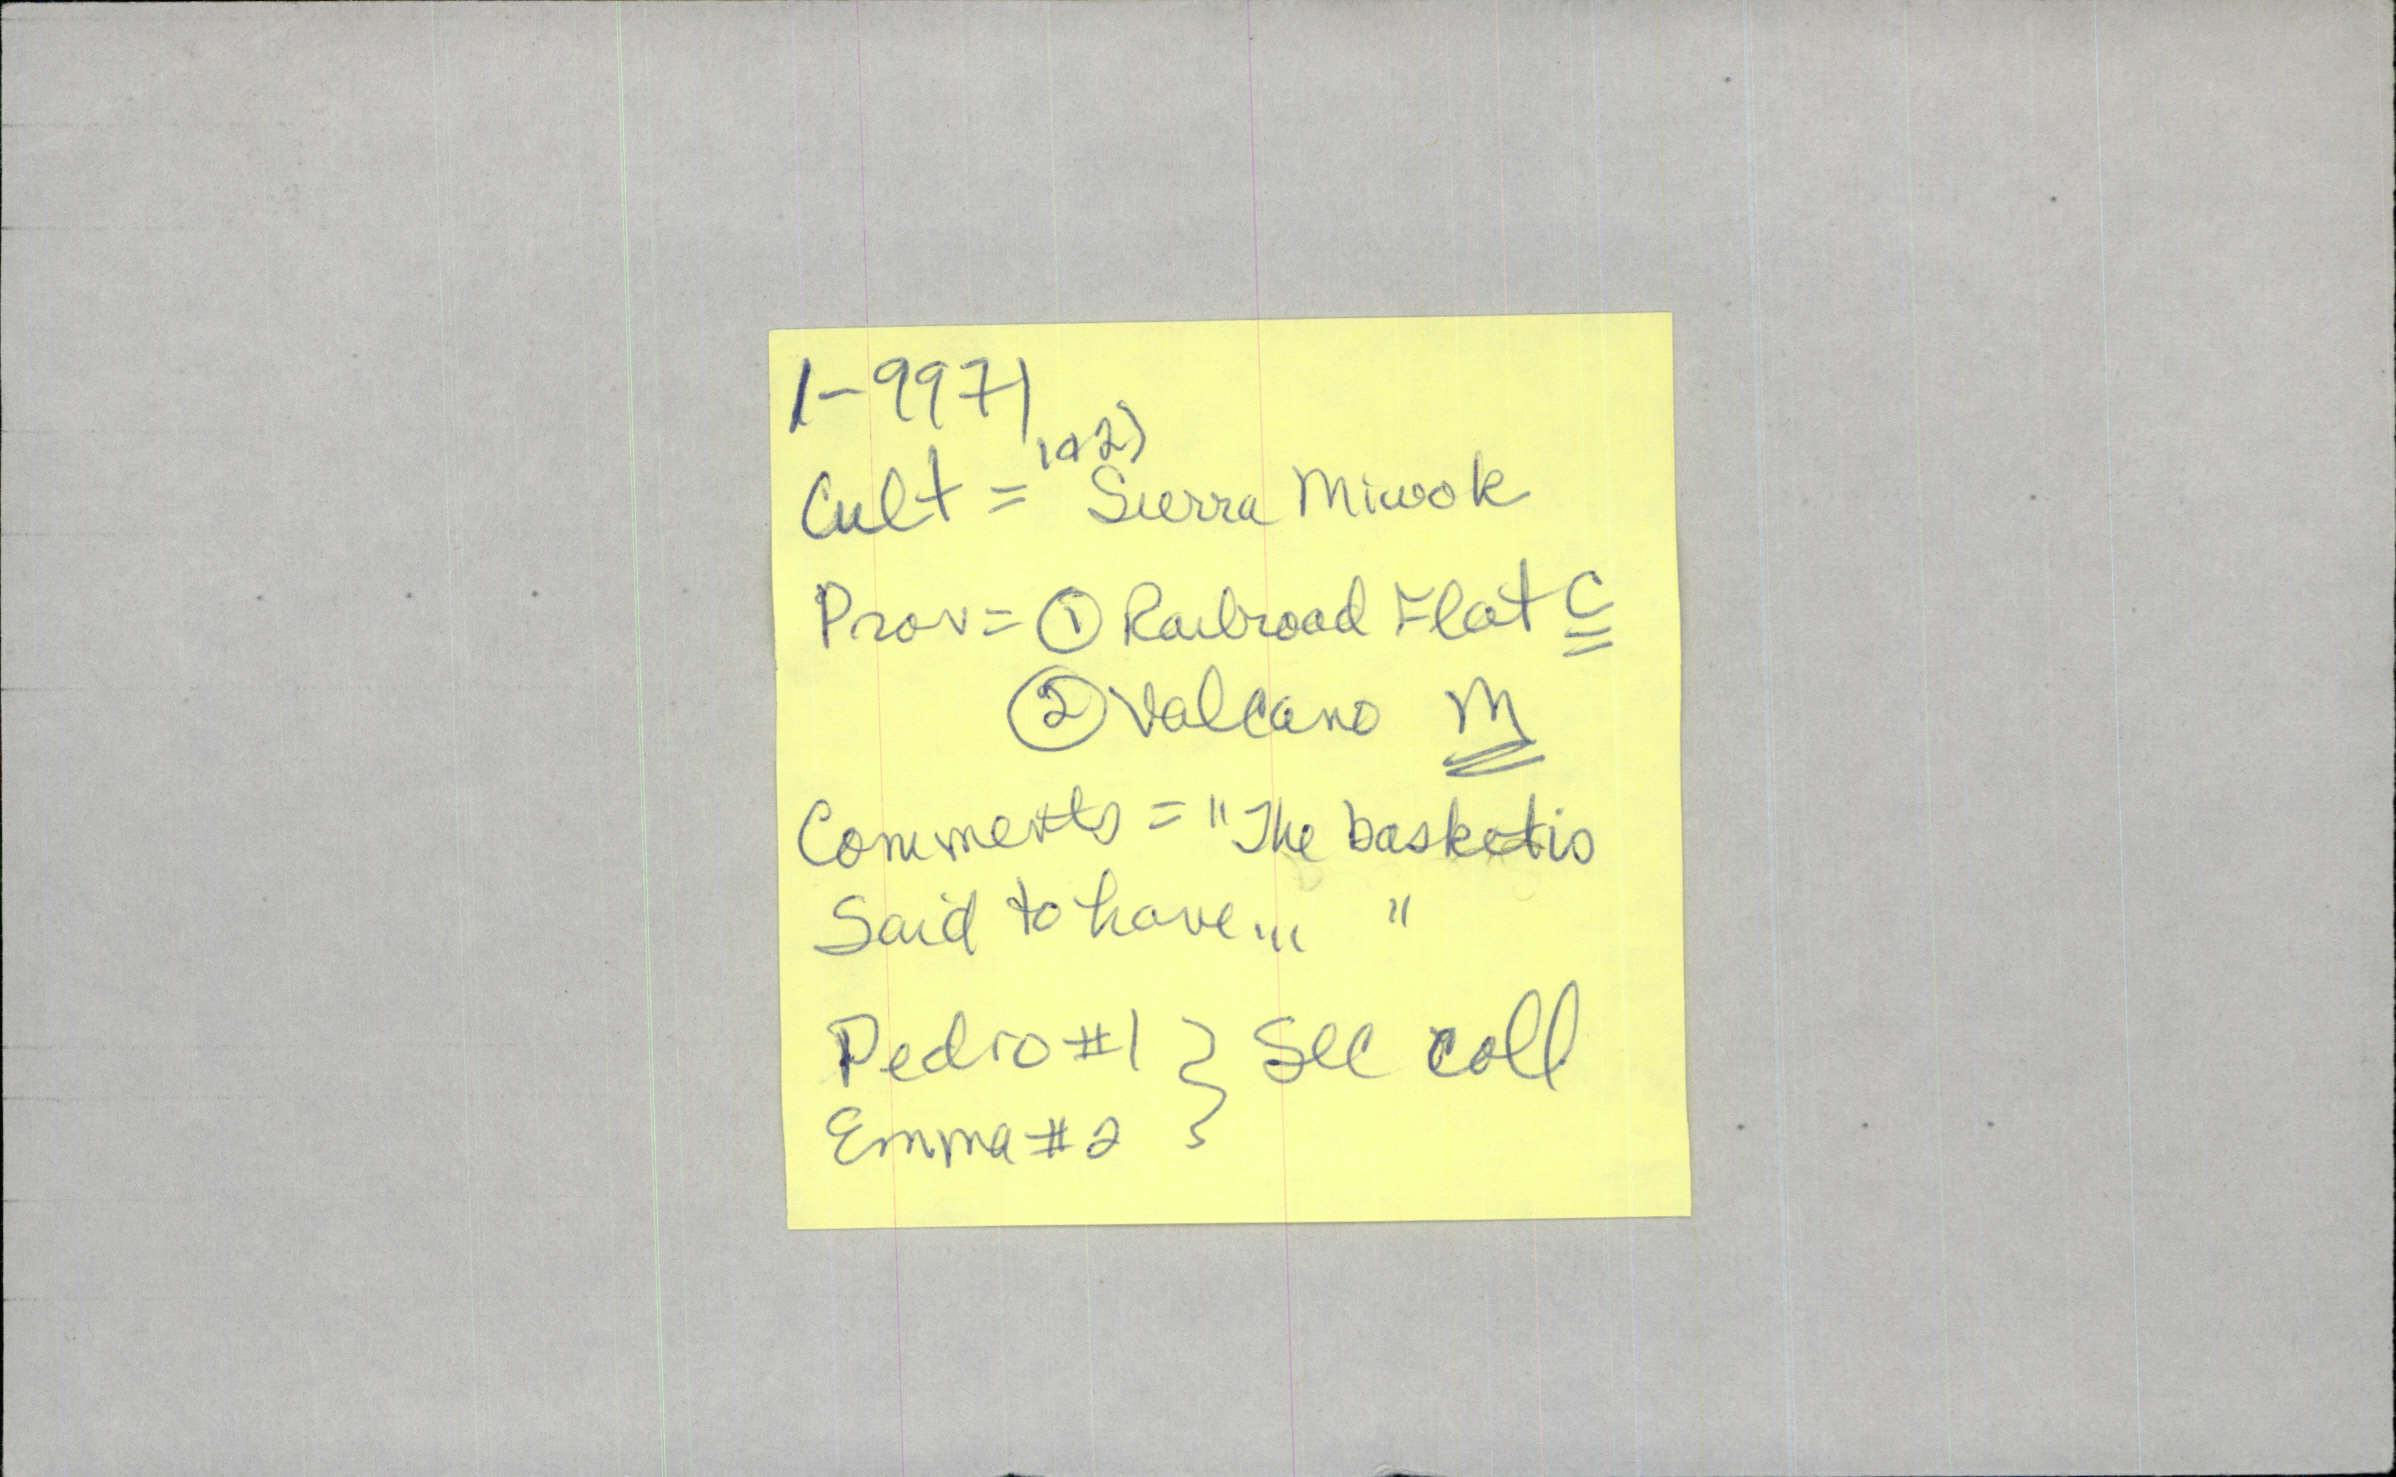 1-9971
1+2)
Cult = Sierra Miwok
Prov = ① Railroad Flat C
② Valcano M
Comments = "The basket is
Said to have... "
Pedro #1 } Sec coll
Emma #2